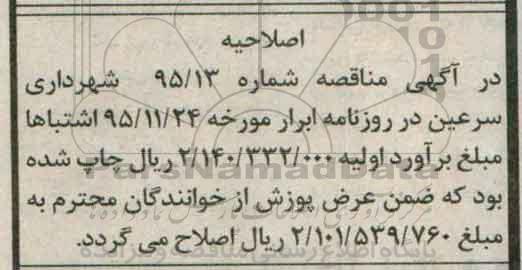 اصلاحیه
در آگهی مناقصه شماره ۹۵/۱۳ شهرداری
سرعین در روزنامه ابرار مورخه ۹۵/۱۱/۲۴ اشتباها
مبلغ برآورد اولیه ۲/۱۴۰/۳۳۲/۰۰۰ ریال چاپ شده
بود که ضمن عرض پوزش از خوانندگان محترم به
مبلغ ۲/۱۰۱/۵۳۹/۷۶۰ ریال اصلاح می گردد.
ParsNamadData
پایگاه اطلاع رسانی مناقصه و مزایده